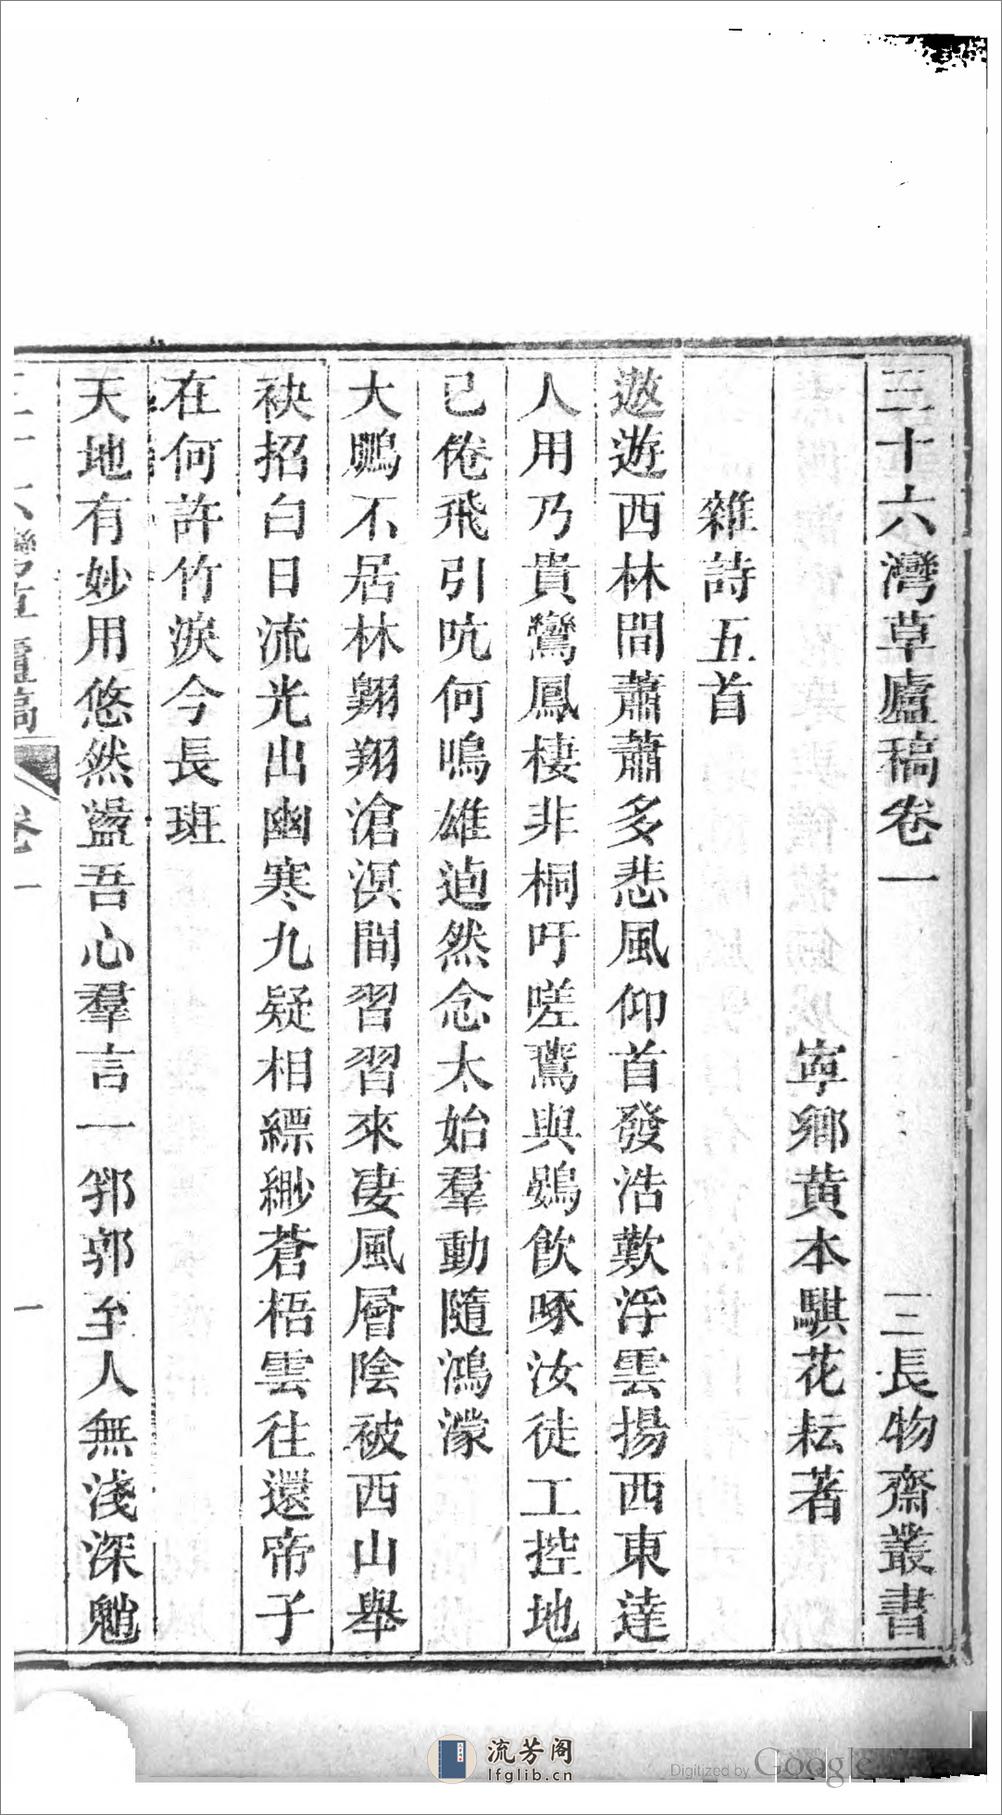 三十六灣草廬稿卷一　三長物齋叢書
寧鄉黃本騏花耘著
雜詩五首
遨遊西林間蕭蕭多悲風仰首發浩歎浮雲揚西東達
人用乃貴鸞鳳棲非桐吁嗟鶩與鷃飲啄汝徒工控地
已倦飛引吭何鳴雄逌然念太始羣動隨鴻濛
大鵬不居林翱翔滄溟間習習來凄風層陰被西山舉
袂招白日流光出幽寒九疑相縹緲蒼梧雲往還帝子
在何許竹淚今長斑
天地有妙用悠然盪吾心羣言一郛郭至人無淺深魈
三十六灣草廬稿　卷一　一
流芳阁
lfglib.cn
Digitized by Google